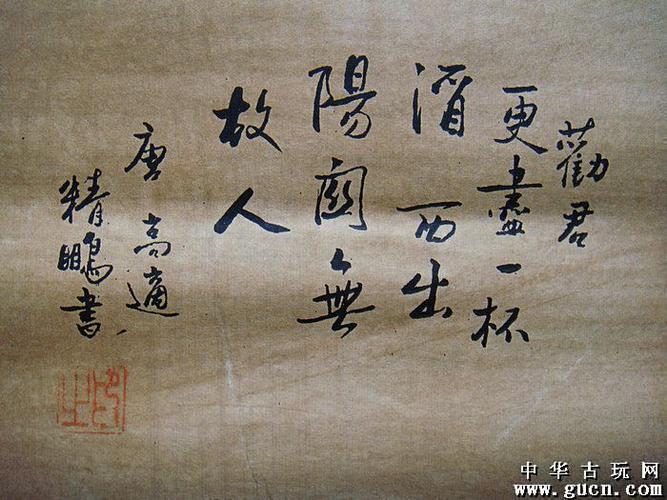 勸君
更盡一杯
酒西出
陽關無
故人
唐高適
精鵬書
中华古玩网
www.gucn.com